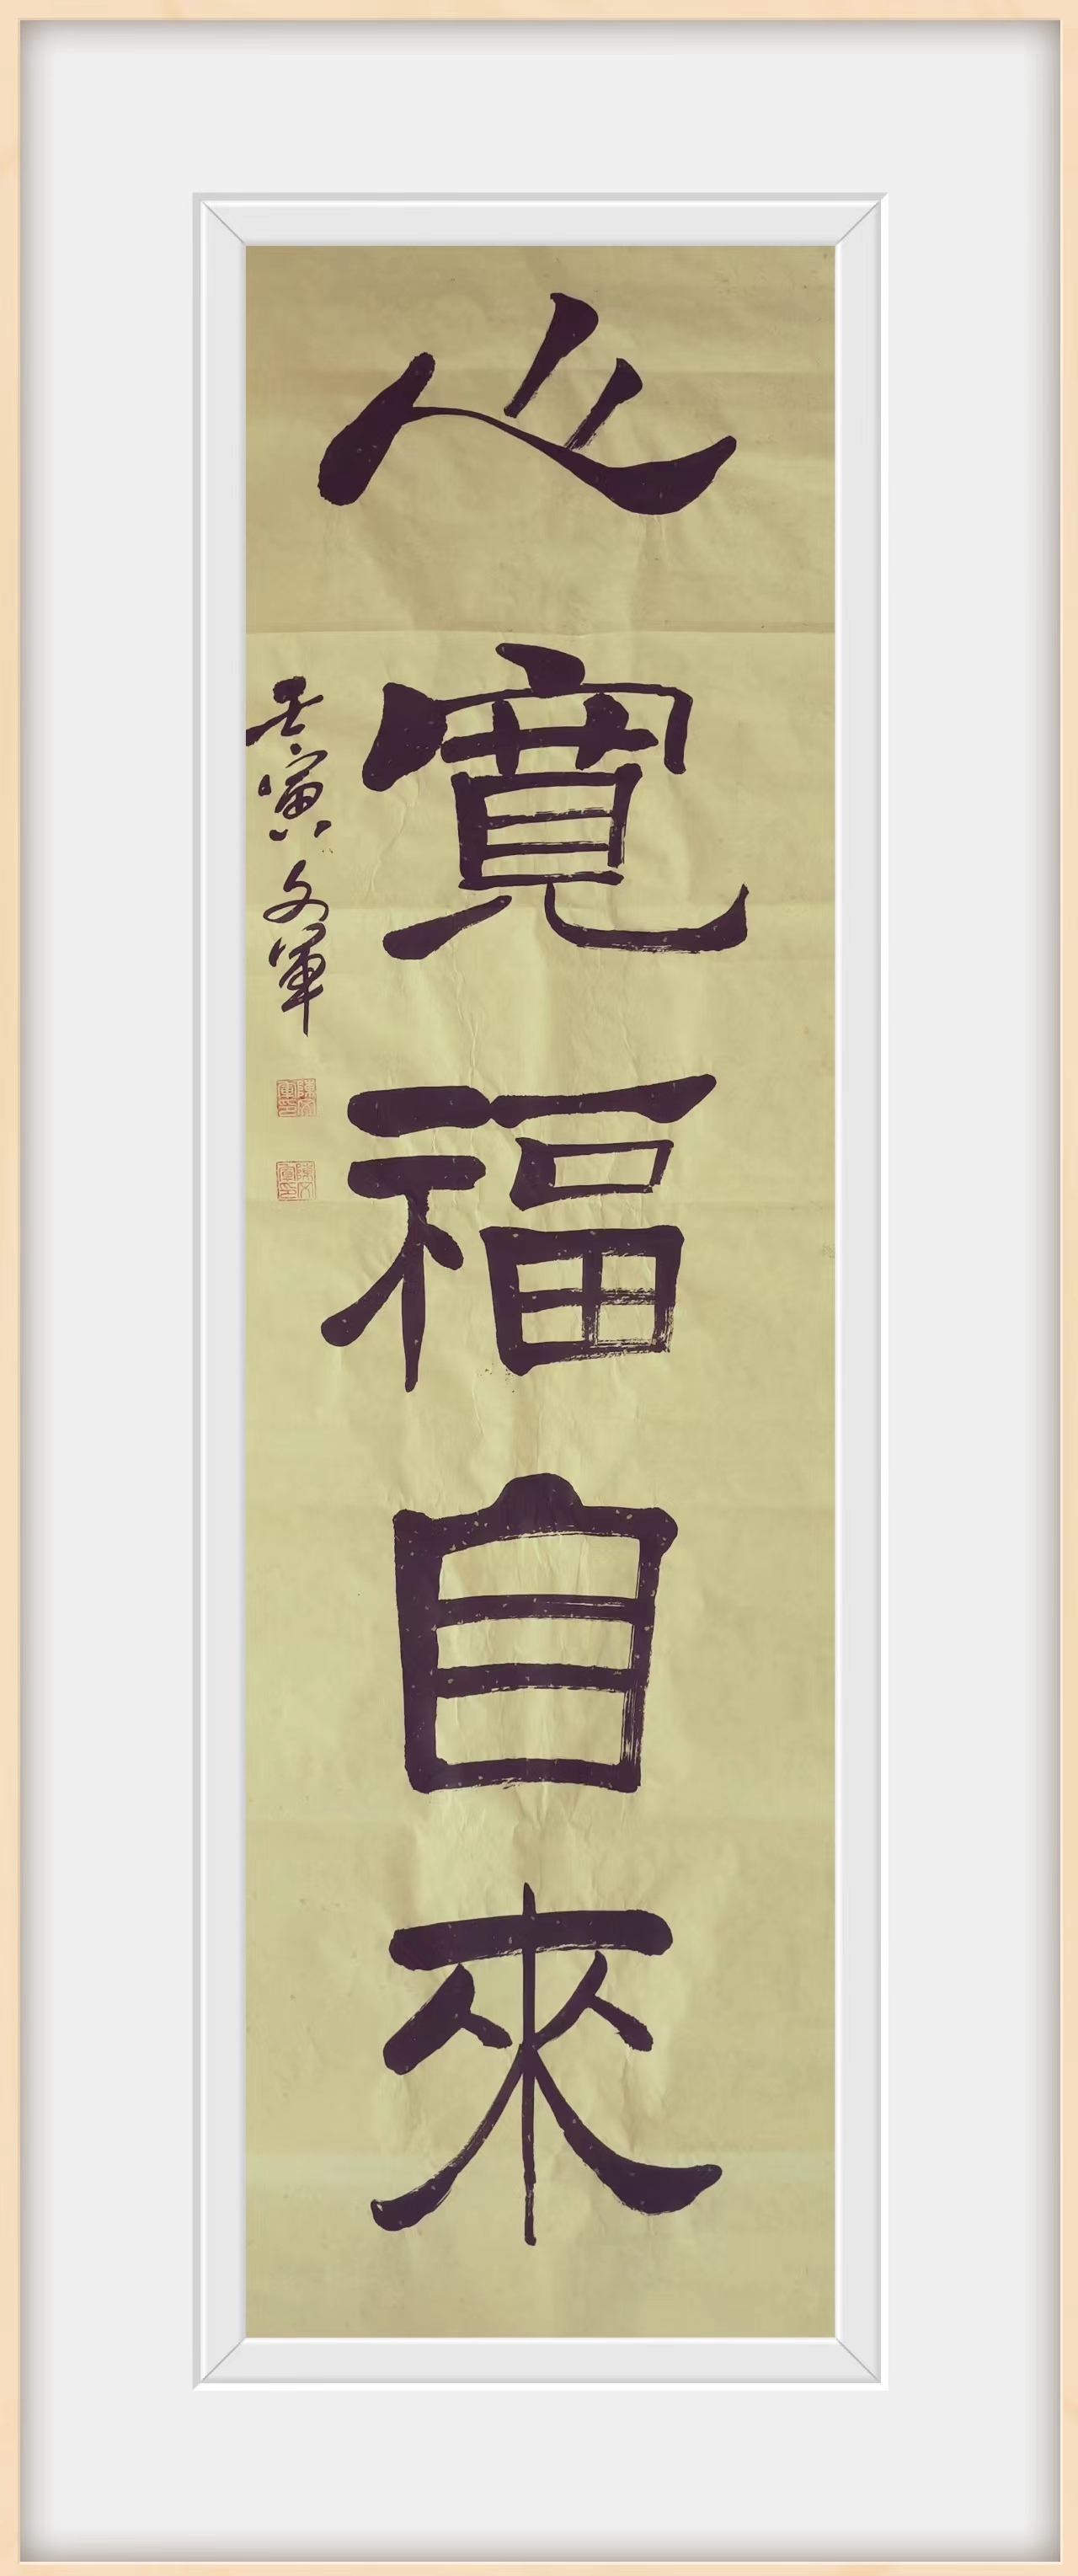 心寬福自來
壬寅文軍